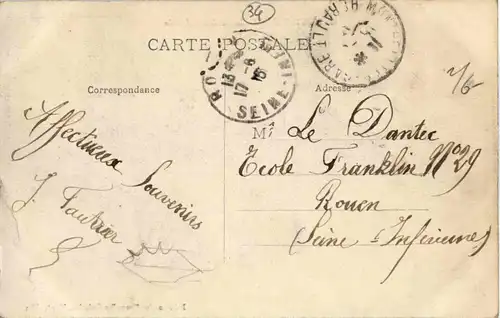 34
CARTE POSTALE
Correspondance
Adresse
SEINE-INF
MONTPELLIER GARE
HERAULT
Affectueux
Souvenirs
J. Fautrier
Mr Le Dantec
Ecole Franklin No 29
Rouen
(Seine-Inférieure)